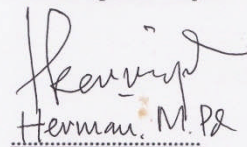 Herman. M.Pd